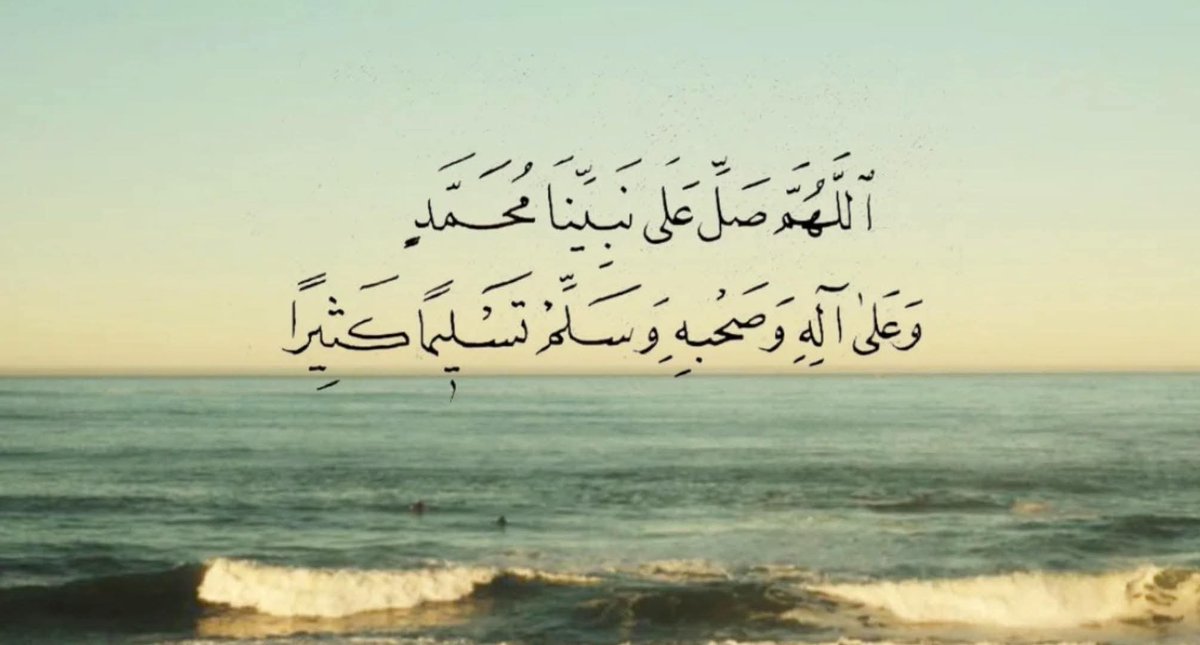 ٱللَّهُمَّ صَلِّ عَلَى نَبِيِّنَا مُحَمَّدٍ
وَعَلَىٰ آلِهِ وَصَحْبِهِ وَسَلِّمْ تَسْلِيمًا كَثِيرًا